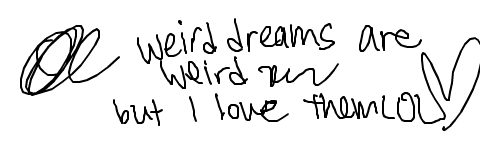 weird dreams are
weird
but I love them LOL